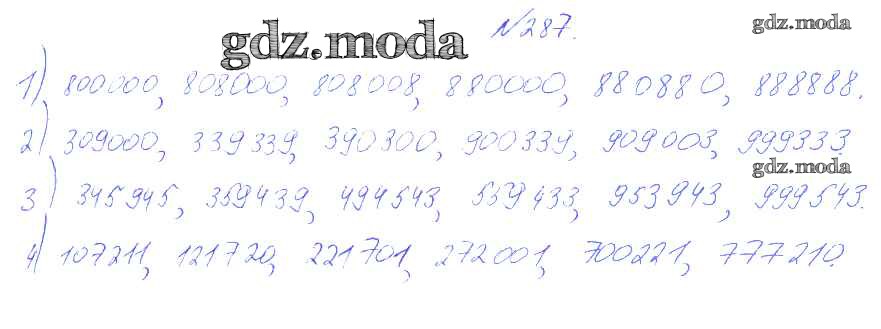 №287.
gdz.moda
gdz.moda
1) 800000, 808000, 808008, 880000, 880880, 888888.
2) 309000, 339339, 390300, 900339, 909003, 999333.
gdz.moda
3) 345945, 359439, 494543, 559433, 953943, 999543.
4) 107211, 121720, 221701, 272001, 700221, 777210.